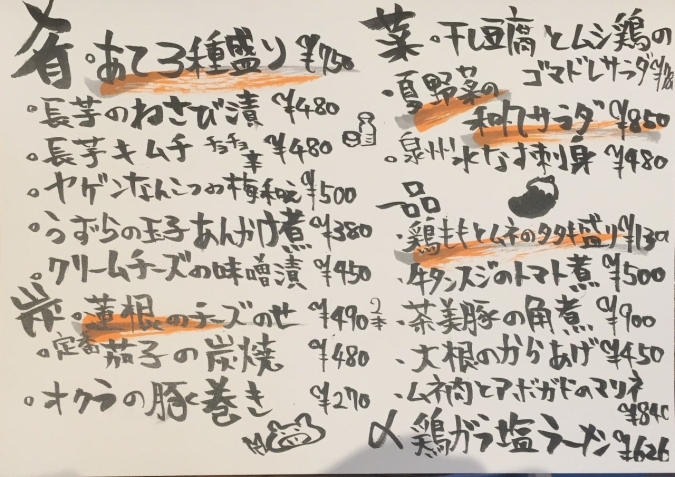 肴
・あて3種盛り ¥750
・長芋のわさび漬 ¥480
・長芋キムチ チョチョ辛 ¥480
・ヤゲンなんこつの梅和え ¥500
・うずらの玉子あんかけ煮 ¥380
・クリームチーズの味噌漬 ¥450
炭
・蓮根のチーズのせ ¥490 2本
・定番 茄子の炭焼 ¥480
・オクラの豚巻き ¥270
菜
・干し豆腐とムシ鶏の
ゴマドレサラダ
・夏野菜の
和風サラダ ¥850
・泉州水なす刺身 ¥480
一品
・鶏ももとムネのタタキ盛り
・牛タンスジのトマト煮 ¥500
・茶美豚の角煮 ¥900
・大根のからあげ ¥450
・ムネ肉とアボガドのマリネ
¥840
〆 鶏ガラ塩ラーメン ¥626